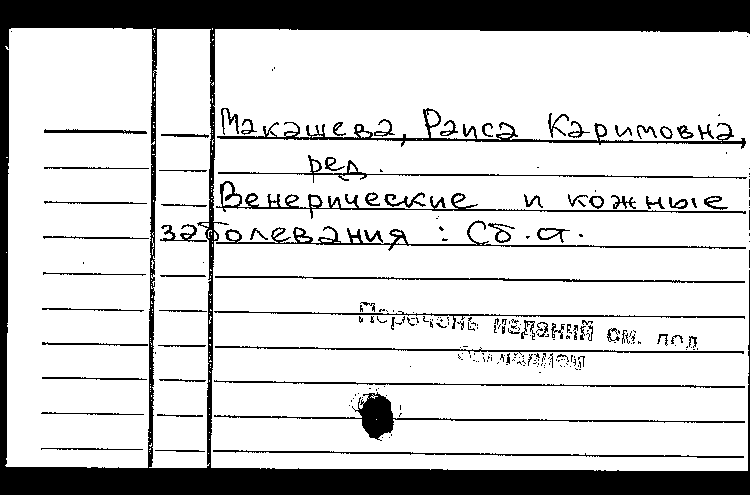 Макашева, Раиса Каримовна,
ред.
Венерические и кожные
заболевания : Сб. ст.
Перечень изданий см. под